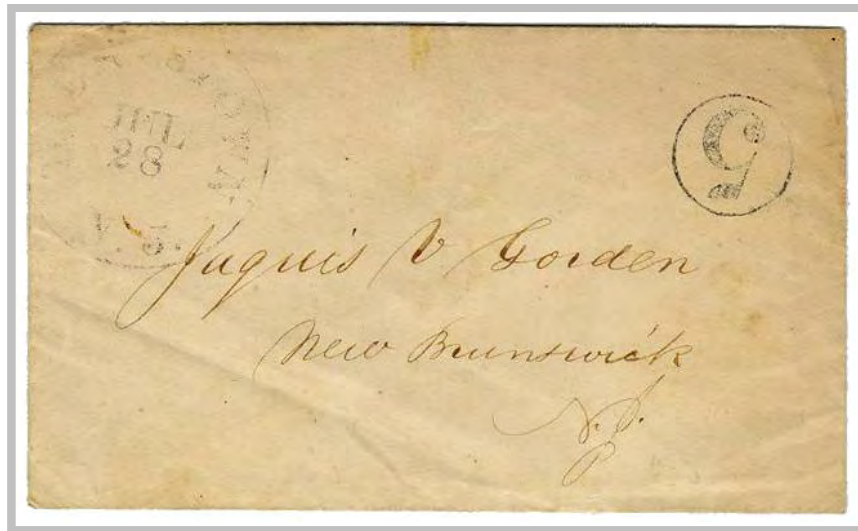 JUL
28
5
Jaquis V Gorden
New Brunswick
N.J.